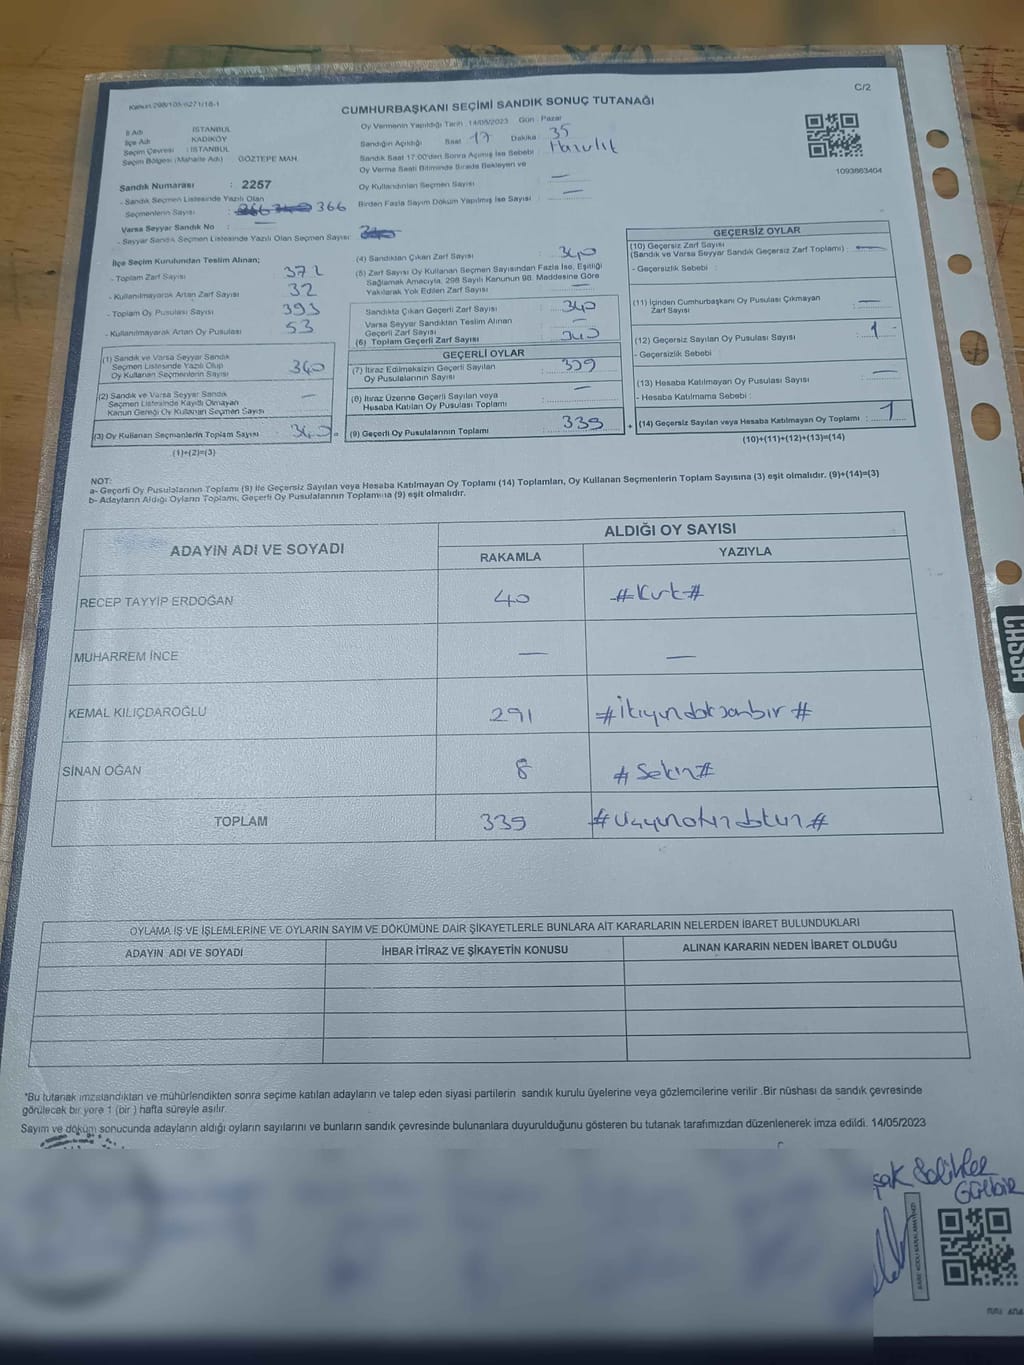 Kanun:298/105/6271/18-1
C/2
CUMHURBAŞKANI SEÇİMİ SANDIK SONUÇ TUTANAĞI
İl Adı : İSTANBUL
İlçe Adı : KADIKÖY
Seçim Çevresi : İSTANBUL
Seçim Bölgesi (Mahalle Adı) : GÖZTEPE MAH.
Sandık Numarası : 2257
- Sandık Seçmen Listesinde Yazılı Olan
Seçmenlerin Sayısı : 366
Varsa Seyyar Sandık No :
- Sayyar Sandık Seçmen Listesinde Yazılı Olan Seçmen Sayısı:
Oy Vermenin Yapıldığı Tarih : 14/05/2023 Gün : Pazar
Sandığın Açıldığı Saat 17 Dakika : 35
Sandık Saat 17:00'den Sonra Açılmış İse Sebebi : Hazırlık
Oy Verme Saati Bitiminde Sırada Bekleyen ve
Oy Kullandırılan Seçmen Sayısı : —
Birden Fazla Sayım Döküm Yapılmış İse Sayısı : —
1093863404
İlçe Seçim Kurulundan Teslim Alınan;
- Toplam Zarf Sayısı : 372
- Kullanılmayarak Artan Zarf Sayısı : 32
- Toplam Oy Pusulası Sayısı : 393
- Kullanılmayarak Artan Oy Pusulası : 53
(1) Sandık ve Varsa Seyyar Sandık
Seçmen Listesinde Yazılı Olup
Oy Kullanan Seçmenlerin Sayısı : 340
(2) Sandık ve Varsa Seyyar Sandık
Seçmen Listesinde Kayıtlı Olmayan
Kanun Gereği Oy Kullanan Seçmen Sayısı : —
(3) Oy Kullanan Seçmenlerin Toplam Sayısı : 340 =
(1)+(2)=(3)
(4) Sandıktan Çıkan Zarf Sayısı : 340
(5) Zarf Sayısı Oy Kullanan Seçmen Sayısından Fazla İse, Eşitliği
Sağlamak Amacıyla, 298 Sayılı Kanunun 98. Maddesine Göre
Yakılarak Yok Edilen Zarf Sayısı : —
Sandıkta Çıkan Geçerli Zarf Sayısı : 340
Varsa Seyyar Sandıktan Teslim Alınan
Geçerli Zarf Sayısı : —
(6) Toplam Geçerli Zarf Sayısı : 340
GEÇERLİ OYLAR
(7) İtiraz Edilmeksizin Geçerli Sayılan
Oy Pusulalarının Sayısı : 339
(8) İtiraz Üzerine Geçerli Sayılan veya
Hesaba Katılan Oy Pusulası Toplamı : —
(9) Geçerli Oy Pusulalarının Toplamı : 339 +
GEÇERSİZ OYLAR
(10) Geçersiz Zarf Sayısı
(Sandık ve Varsa Seyyar Sandık Geçersiz Zarf Toplamı) : —
- Geçersizlik Sebebi :
(11) İçinden Cumhurbaşkanı Oy Pusulası Çıkmayan
Zarf Sayısı : —
(12) Geçersiz Sayılan Oy Pusulası Sayısı : 1
- Geçersizlik Sebebi :
(13) Hesaba Katılmayan Oy Pusulası Sayısı : —
- Hesaba Katılmama Sebebi :
(14) Geçersiz Sayılan veya Hesaba Katılmayan Oy Toplamı : 1
(10)+(11)+(12)+(13)=(14)
NOT:
a- Geçerli Oy Pusulalarının Toplamı (9) ile Geçersiz Sayılan veya Hesaba Katılmayan Oy Toplamı (14) Toplamları, Oy Kullanan Seçmenlerin Toplam Sayısına (3) eşit olmalıdır. (9)+(14)=(3)
b- Adayların Aldığı Oyların Toplamı, Geçerli Oy Pusulalarının Toplamına (9) eşit olmalıdır.
ADAYIN ADI VE SOYADI
ALDIĞI OY SAYISI
RAKAMLA YAZIYLA
RECEP TAYYİP ERDOĞAN 40 #Kırk#
MUHARREM İNCE — —
KEMAL KILIÇDAROĞLU 291 #İkiyüzdoksanbir#
SİNAN OĞAN 8 #Sekiz#
TOPLAM 339 #Üçyüzotuzdokuz#
OYLAMA İŞ VE İŞLEMLERİNE VE OYLARIN SAYIM VE DÖKÜMÜNE DAİR ŞİKAYETLERLE BUNLARA AİT KARARLARIN NELERDEN İBARET BULUNDUKLARI
ADAYIN ADI VE SOYADI İHBAR İTİRAZ VE ŞİKAYETİN KONUSU ALINAN KARARIN NEDEN İBARET OLDUĞU
"Bu tutanak imzalandıktan ve mühürlendikten sonra seçime katılan adayların ve talep eden siyasi partilerin sandık kurulu üyelerine veya gözlemcilerine verilir .Bir nüshası da sandık çevresinde
görülecek bir yere 1 (bir ) hafta süreyle asılır.
Sayım ve döküm sonucunda adayların aldığı oyların sayılarını ve bunların sandık çevresinde bulunanlara duyurulduğunu gösteren bu tutanak tarafımızdan düzenlenerek imza edildi. 14/05/2023